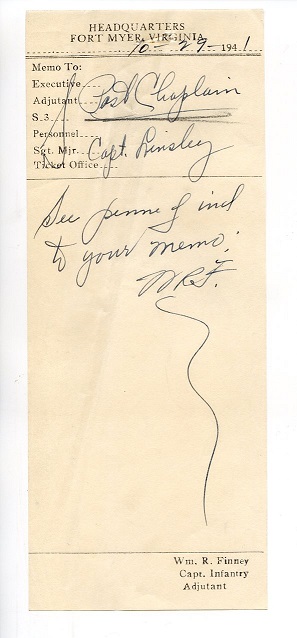 HEADQUARTERS
FORT MYER, VIRGINIA
10-29-1941
Memo To:
Executive
Adjutant Post Chaplain
S.3
Personnel
Sgt. Mjr. Capt. Linsley
Ticket Office
See
to your memo.
WRF.
Wm. R. Finney
Capt. Infantry
Adjutant